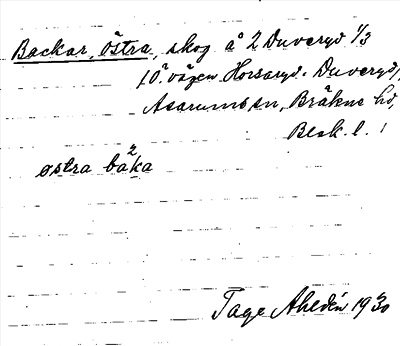 Backar, östra, skog å 2 Duveryd 1/3
10. vägen Horsaryd - Duveryd,
Asarums sn, Bräkne hd,
Blek. l.
østra báka
Tage Ahldén 1930